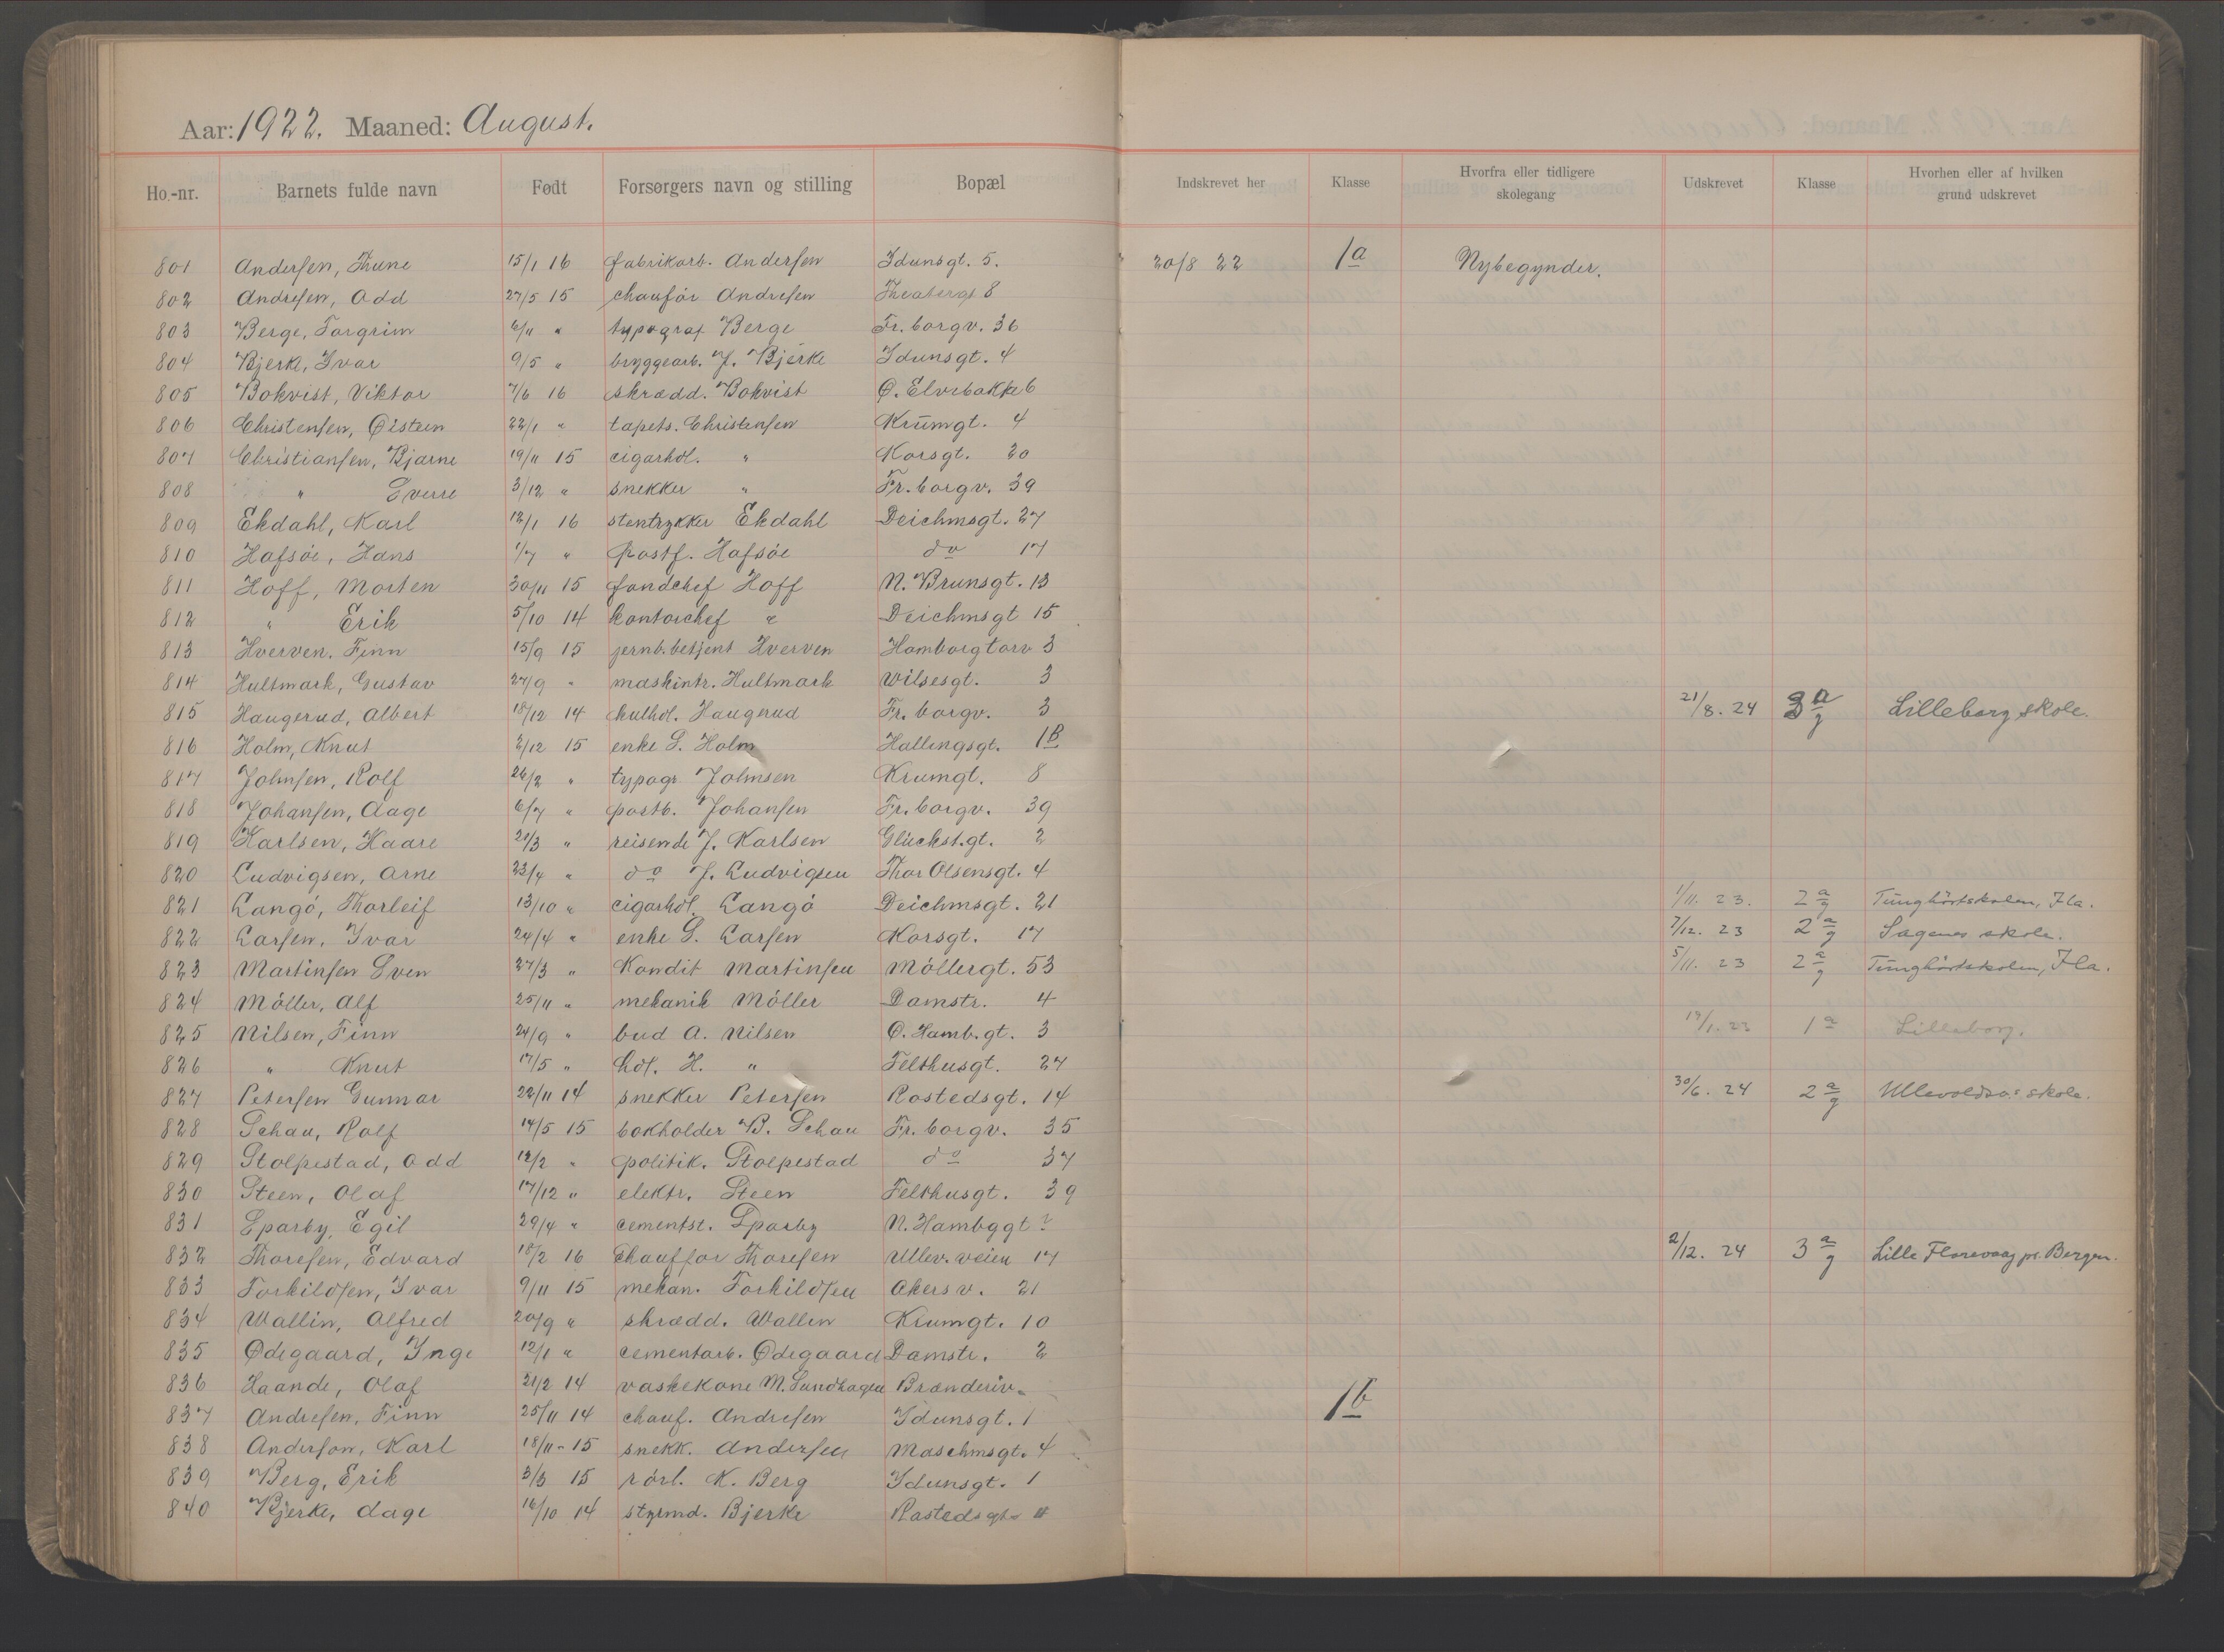 Aar: 1922. Maaned: August.
Ho.-nr. Barnets fulde navn Født Forsørgers navn og stilling Bopæl Indskrevet her Klasse Hvorfra eller tidligere skolegang Udskrevet Klasse Hvorhen eller af hvilken grund udskrevet
801 Andersen, Thune 15/1 16 fabrikarb. Andersen Idunsgt. 5. 20/8 22 1a Nybegynder.
802 Andresen, Odd 27/5 15 chauför Andresen Theatergt 8
803 Berge, Torgrim 6/11 " typograf Berge Fr. borgv. 36
804 Bjerke, Ivar 9/5 " bryggearb. J. Bjerke Idunsgt. 4
805 Bokvist, Viktor 7/6 16 skrædd. Bokvist Ø. Elvebakke 6
806 Christensen, Øistein 22/1 " tapets. Christensen Krumgt. 4
807 Christiansen, Bjarne 19/11 15 cigarhdl. " Korsgt. 20
808 " Sverre 3/12 " snekker " Fr. borgv. 39
809 Ekdahl, Karl 12/1 16 stentrykker Ekdahl Deichmsgt. 27
810 Hafsöe, Hans 1/7 " postf. Hafsöe do 17
811 Hoff, Morten 30/11 15 fondchef Hoff N. Brunsgt. 13
812 " Erik 5/10 14 kontorchef " Deichmsgt 15
813 Hverven. Finn 15/9 15 jernb.betjent Hverven Hamborgtorv 3
814 Hultmark, Gustav 27/9 " maskintr. Hultmark Wilsesgt. 3
815 Haugerud, Albert 18/12 14 kulhdl. Haugerud Fr. borgv. 3 21/8. 24 3a g Lilleborg skole.
816 Holm, Knut 2/12 15 enke S. Holm Hallingsgt. 1B
817 Johnsen, Rolf 26/2 " typogr. Johnsen Krumgt. 8
818 Johansen, Aage 6/7 " postb. Johansen Fr. borgv. 39
819 Karlsen, Kaare 21/3 " reisende J. Karlsen Glückst.gt. 2
820 Ludvigsen, Arne 23/4 " do J. Ludvigsen Thor Olsensgt. 4
821 Langö, Thorleif 13/10 " cigarhdl. Langö Deichmsgt. 21 1/11. 23. 2a g Tunghörtskolen, Ila.
822 Larsen, Ivar 24/4 " enke S. Larsen Korsgt. 17 7/12. 23 2a g Sagenes skole.
823 Martinsen Sven 27/3 " Kondit Martinsen Möllergt. 53 5/11. 23 2a g Tunghörtskolen, Ila.
824 Möller, Alf 25/11 " mekanik Möller Damstr. 4
825 Nilsen, Finn 24/9 " bud A. Nilsen Ø. Hamb.gt. 3 17/1. 23 1a Lilleborg.
826 " Knut 17/5 " hdl. H. " Felthusgt. 27
827 Petersen Gunnar 22/11 14 snekker Petersen Rostedsgt. 14 30/6. 24 2a g Ullevoldsv. skole.
828 Schau, Rolf 14/5 15 bokholder B. Schau Fr. borgv. 35
829 Stolpestad, Odd 12/2 " politik. Stolpestad do 37
830 Steen, Olaf 17/12 " elektr. Steen Felthusgt. 39
831 Sparby, Egil 29/4 " cementst. Sparby N. Hambggt ?
832 Thoresen, Edvard 18/2 16 Chauffør Thoresen Ullev. veien 17 2/12. 24 3a g Lille Florevaag pr. Bergen.
833 Torkildsen, Ivar 9/11 15 mekan. Torkildsen Akersv. 21
834 Wallin, Alfred 20/9 " skrædd. Wallin Krumgt. 10
835 Ødegaard, Inge 12/1 " cementarb. Ødegaard Damstr. 2
836 Haande, Olaf 21/2 14 vaskekone M. Sundhagen Brænderiv.
837 Andresen, Finn 25/11 14 chauf. Andresen Idunsgt. 1 1b
838 Anderson, Karl 18/11 - 15 snekk. Andersen Maschmsgt. 4
839 Berg, Erik 3/3 15 rörl. K. Berg Idunsgt. 1
840 Bjerke, Aage 16/10 14 styrmd. Bjerke Rostedsgt. 11